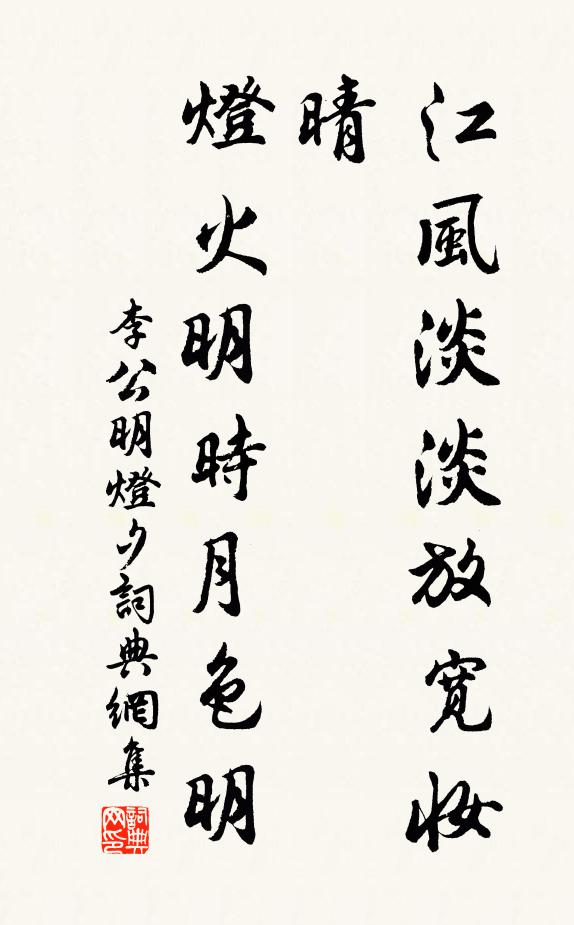 江風淡淡放寬妝
晴
燈火明時月色明
李公明燈夕詞典網集
詞典網印